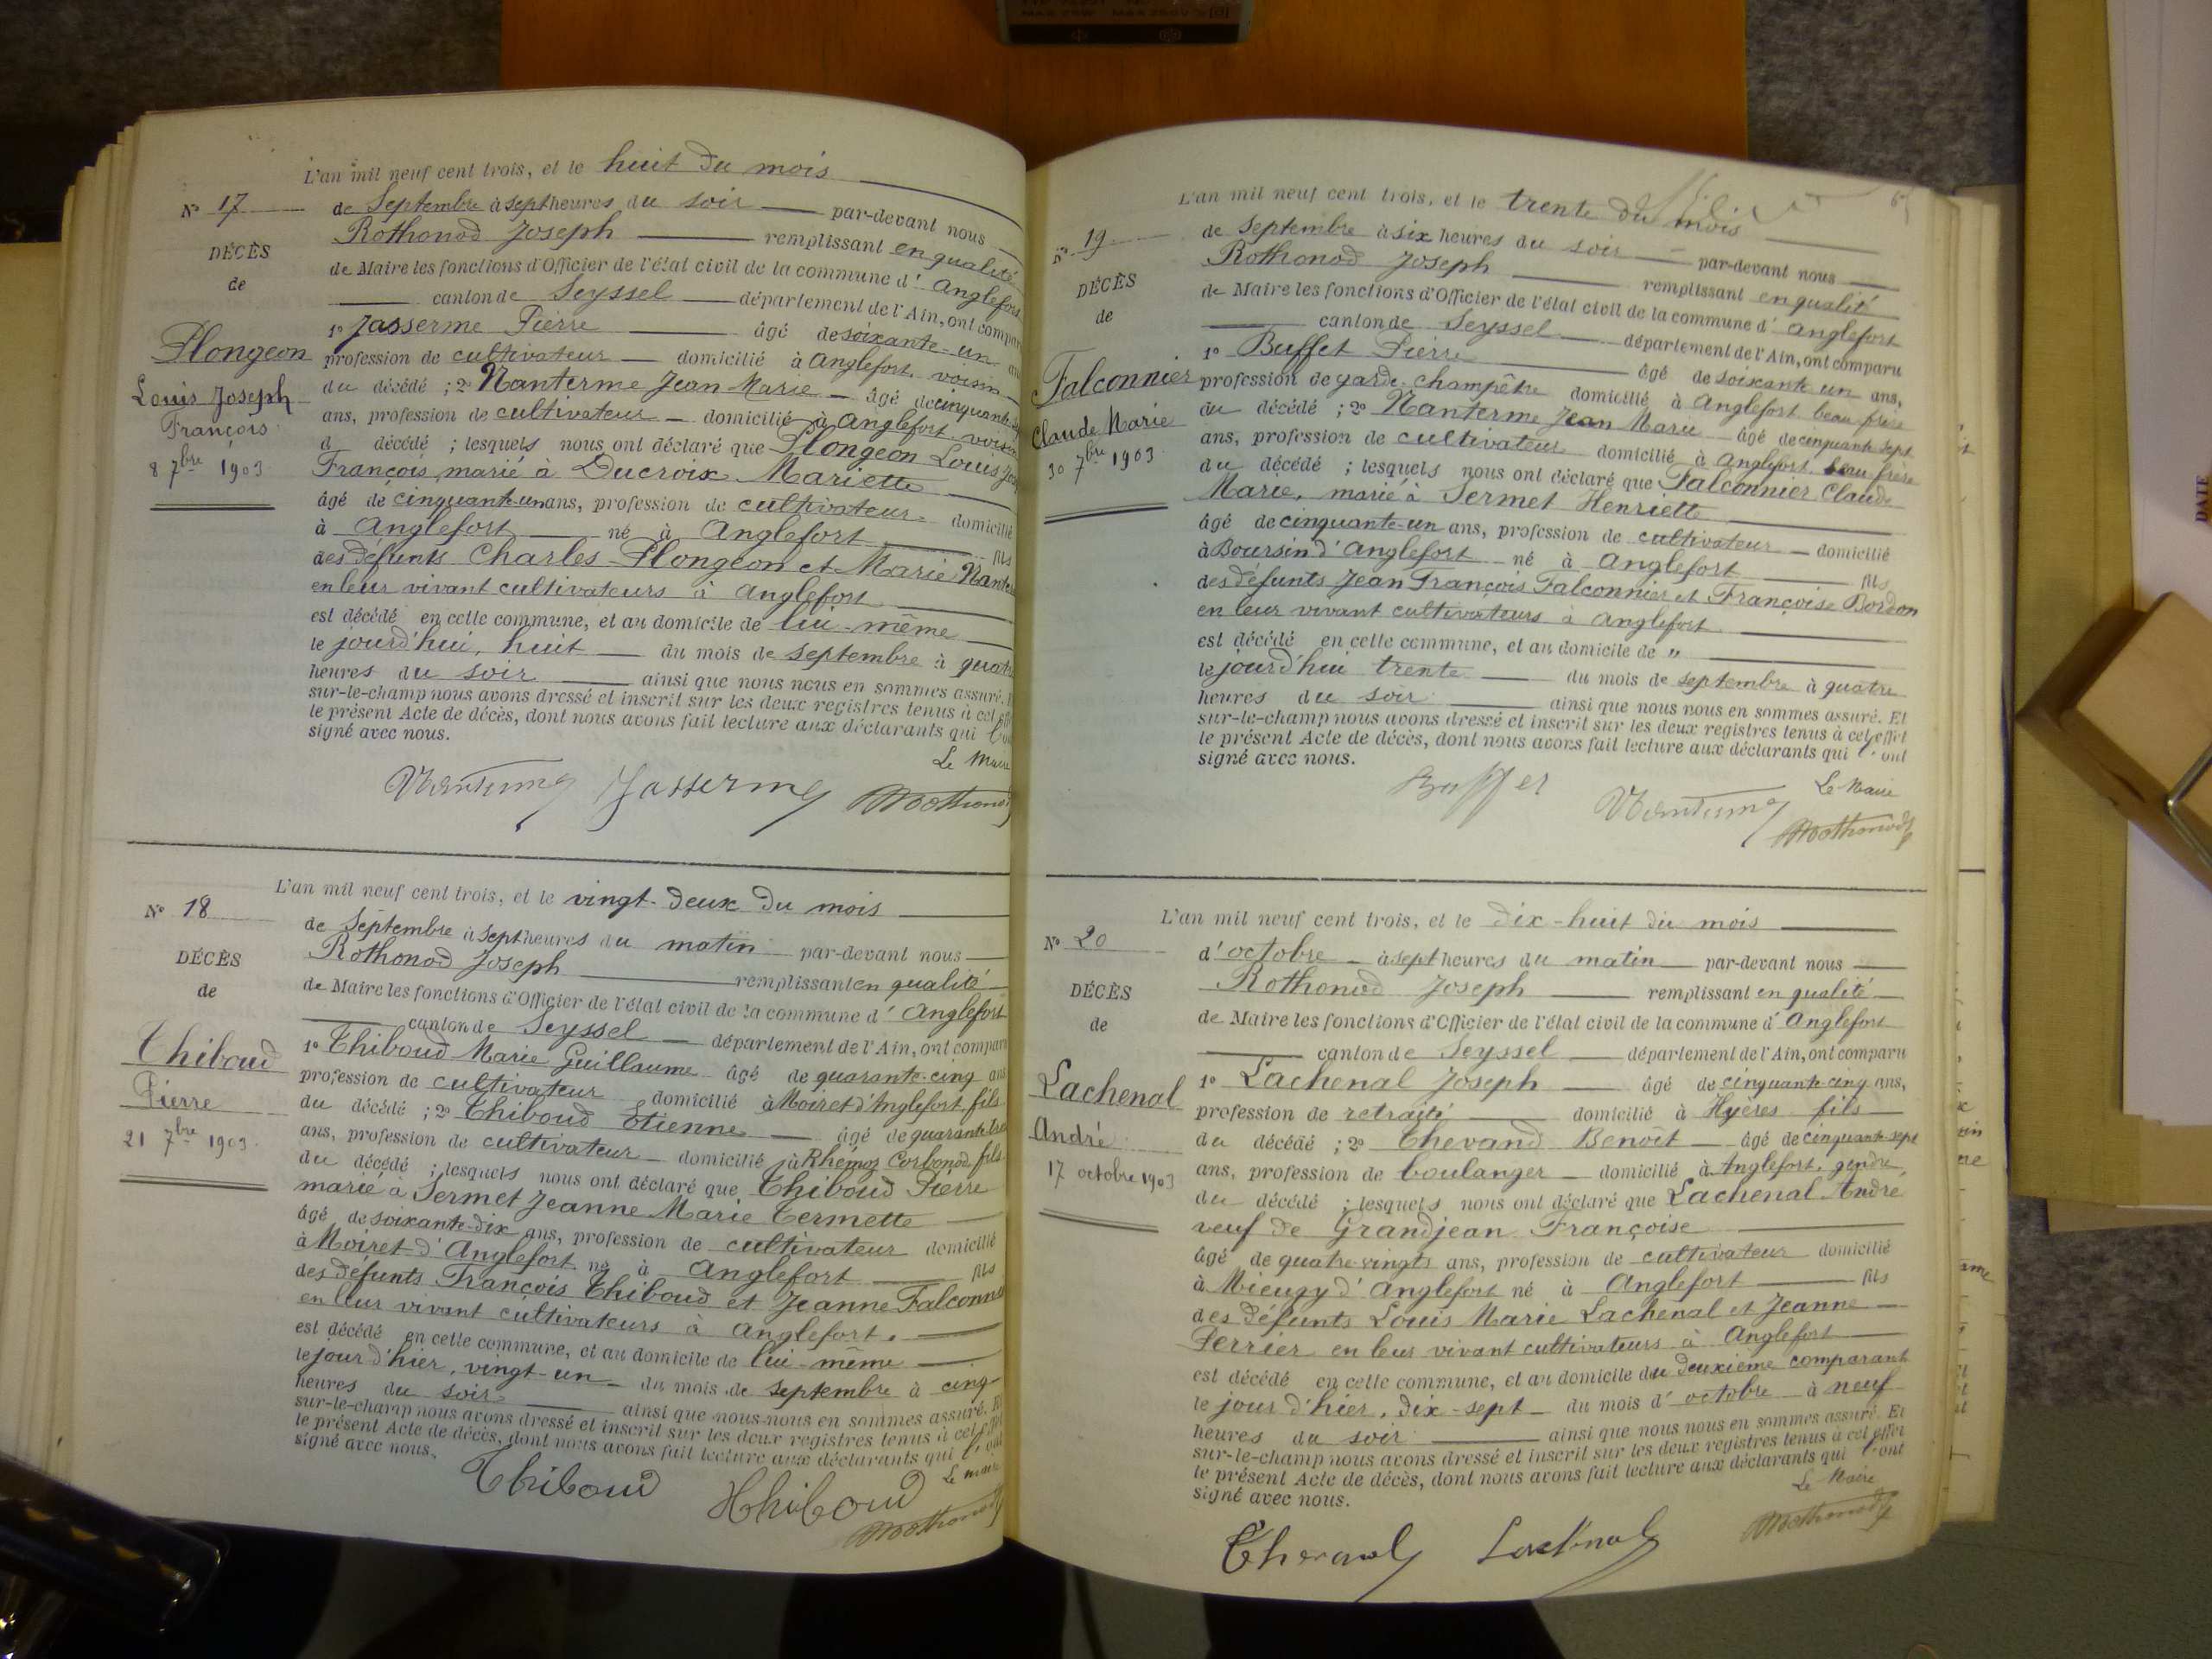 L'an mil neuf cent trois, et le huit du mois
N° 17
de Septembre à sept heures du soir par-devant nous
Rothonod Joseph remplissant en qualité
DÉCÈS
de Maire les fonctions d'Officier de l'état civil de la commune d'Anglefort
de
canton de Seyssel département de l'Ain, ont comparu
1° Jasserme Pierre âgé de soixante-un
Plongeon
profession de cultivateur domicilié à Anglefort, voisin
Louis Joseph
du décédé ; 2° Nanterme Jean Marie âgé de cinquante
François
ans, profession de cultivateur domicilié à Anglefort voisin
8 7bre 1903
d décédé ; lesquels nous ont déclaré que Plongeon Louis
François, marié à Ducroix Mariette
âgé de cinquante-un ans, profession de cultivateur domicilié
à Anglefort né à Anglefort fils
des défunts Charles Plongeon et Marie
en leur vivant cultivateurs à Anglefort
est décédé en cette commune, et au domicile de lui-même
le jourd'hui, huit du mois de septembre à quatre
heures du soir ainsi que nous nous en sommes assuré.
sur-le-champ nous avons dressé et inscrit sur les deux registres tenus à cet
le présent Acte de décès, dont nous avons fait lecture aux déclarants qui l'
signé avec nous.
Le Maire
Nanterme Jasserme Rothonod
L'an mil neuf cent trois, et le vingt-deux du mois
N° 18
de Septembre à sept heures du matin par-devant nous
Rothonod Joseph remplissant en qualité
DÉCÈS
de Maire les fonctions d'Officier de l'état civil de la commune d'Anglefort
de
canton de Seyssel département de l'Ain, ont comparu
1° Thiboud Marie Guillaume âgé de quarante-cinq ans
Thiboud
profession de cultivateur domicilié à Moiret d'Anglefort, fils
Pierre
du décédé ; 2° Thiboud Etienne âgé de quarante
21 7bre 1903
ans, profession de cultivateur domicilié à Rhémoz Corbonod, fils
du décédé ; lesquels nous ont déclaré que Thiboud Pierre
marié à Sermet Jeanne Marie Termette
âgé de soixante-dix ans, profession de cultivateur domicilié
à Moiret d'Anglefort né à Anglefort fils
des défunts François Thiboud et Jeanne
en leur vivant cultivateurs à Anglefort.
est décédé en cette commune, et au domicile de lui-même
le jour d'hier, vingt-un du mois de septembre à cinq
heures du soir ainsi que nous nous en sommes assuré. Et
sur-le-champ nous avons dressé et inscrit sur les deux registres tenus à cet effet
le présent Acte de décès, dont nous avons fait lecture aux déclarants qui l'ont
signé avec nous.
Le maire
Thiboud Thiboud Rothonod
L'an mil neuf cent trois, et le trente du mois
N° 19
de Septembre à six heures du soir par-devant nous
Rothonod Joseph remplissant en qualité
DÉCÈS
de Maire les fonctions d'Officier de l'état civil de la commune d'Anglefort
de
canton de Seyssel département de l'Ain, ont comparu
1° Buffet Pierre âgé de soixante un ans,
Falconnier
profession de garde-champêtre domicilié à Anglefort beau frère
Claude Marie
du décédé ; 2° Nanterme Jean Marie âgé de cinquante sept
30 7bre 1903
ans, profession de cultivateur domicilié à Anglefort, beau frère
du décédé ; lesquels nous ont déclaré que Falconnier Claude
Marie, marié à Sermet Henriette
âgé de cinquante-un ans, profession de cultivateur domicilié
à Boursin d'Anglefort né à Anglefort fils
des défunts Jean François Falconnier et Françoise Bordon
en leur vivant cultivateurs à Anglefort
est décédé en cette commune, et au domicile de "
le jourd'hui trente du mois de septembre à quatre
heures du soir ainsi que nous nous en sommes assuré. Et
sur-le-champ nous avons dressé et inscrit sur les deux registres tenus à cet effet
le présent Acte de décès, dont nous avons fait lecture aux déclarants qui l'ont
signé avec nous.
Le Maire
Buffet Nanterme Rothonod
L'an mil neuf cent trois, et le dix-huit du mois
N° 20
d'octobre à sept heures du matin par-devant nous
Rothonod Joseph remplissant en qualité
DÉCÈS
de Maire les fonctions d'Officier de l'état civil de la commune d'Anglefort
de
canton de Seyssel département de l'Ain, ont comparu
1° Lachenal Joseph âgé de cinquante-cinq ans,
Lachenal
profession de retraité domicilié à Hyères fils
André
du décédé ; 2° Thevand Benoît âgé de cinquante-sept
17 octobre 1903
ans, profession de boulanger domicilié à Anglefort, gendre
du décédé ; lesquels nous ont déclaré que Lachenal André
veuf de Grandjean Françoise
âgé de quatre-vingts ans, profession de cultivateur domicilié
à Mieugy d'Anglefort né à Anglefort fils
des défunts Louis Marie Lachenal et Jeanne
Perrier en leur vivant cultivateurs à Anglefort
est décédé en cette commune, et au domicile du deuxième comparant
le jour d'hier, dix-sept du mois d'octobre à neuf
heures du soir ainsi que nous nous en sommes assuré. Et
sur-le-champ nous avons dressé et inscrit sur les deux registres tenus à cet effet
le présent Acte de décès, dont nous avons fait lecture aux déclarants qui l'ont
signé avec nous.
Le Maire
Thevand Lachenal Rothonod
DATE